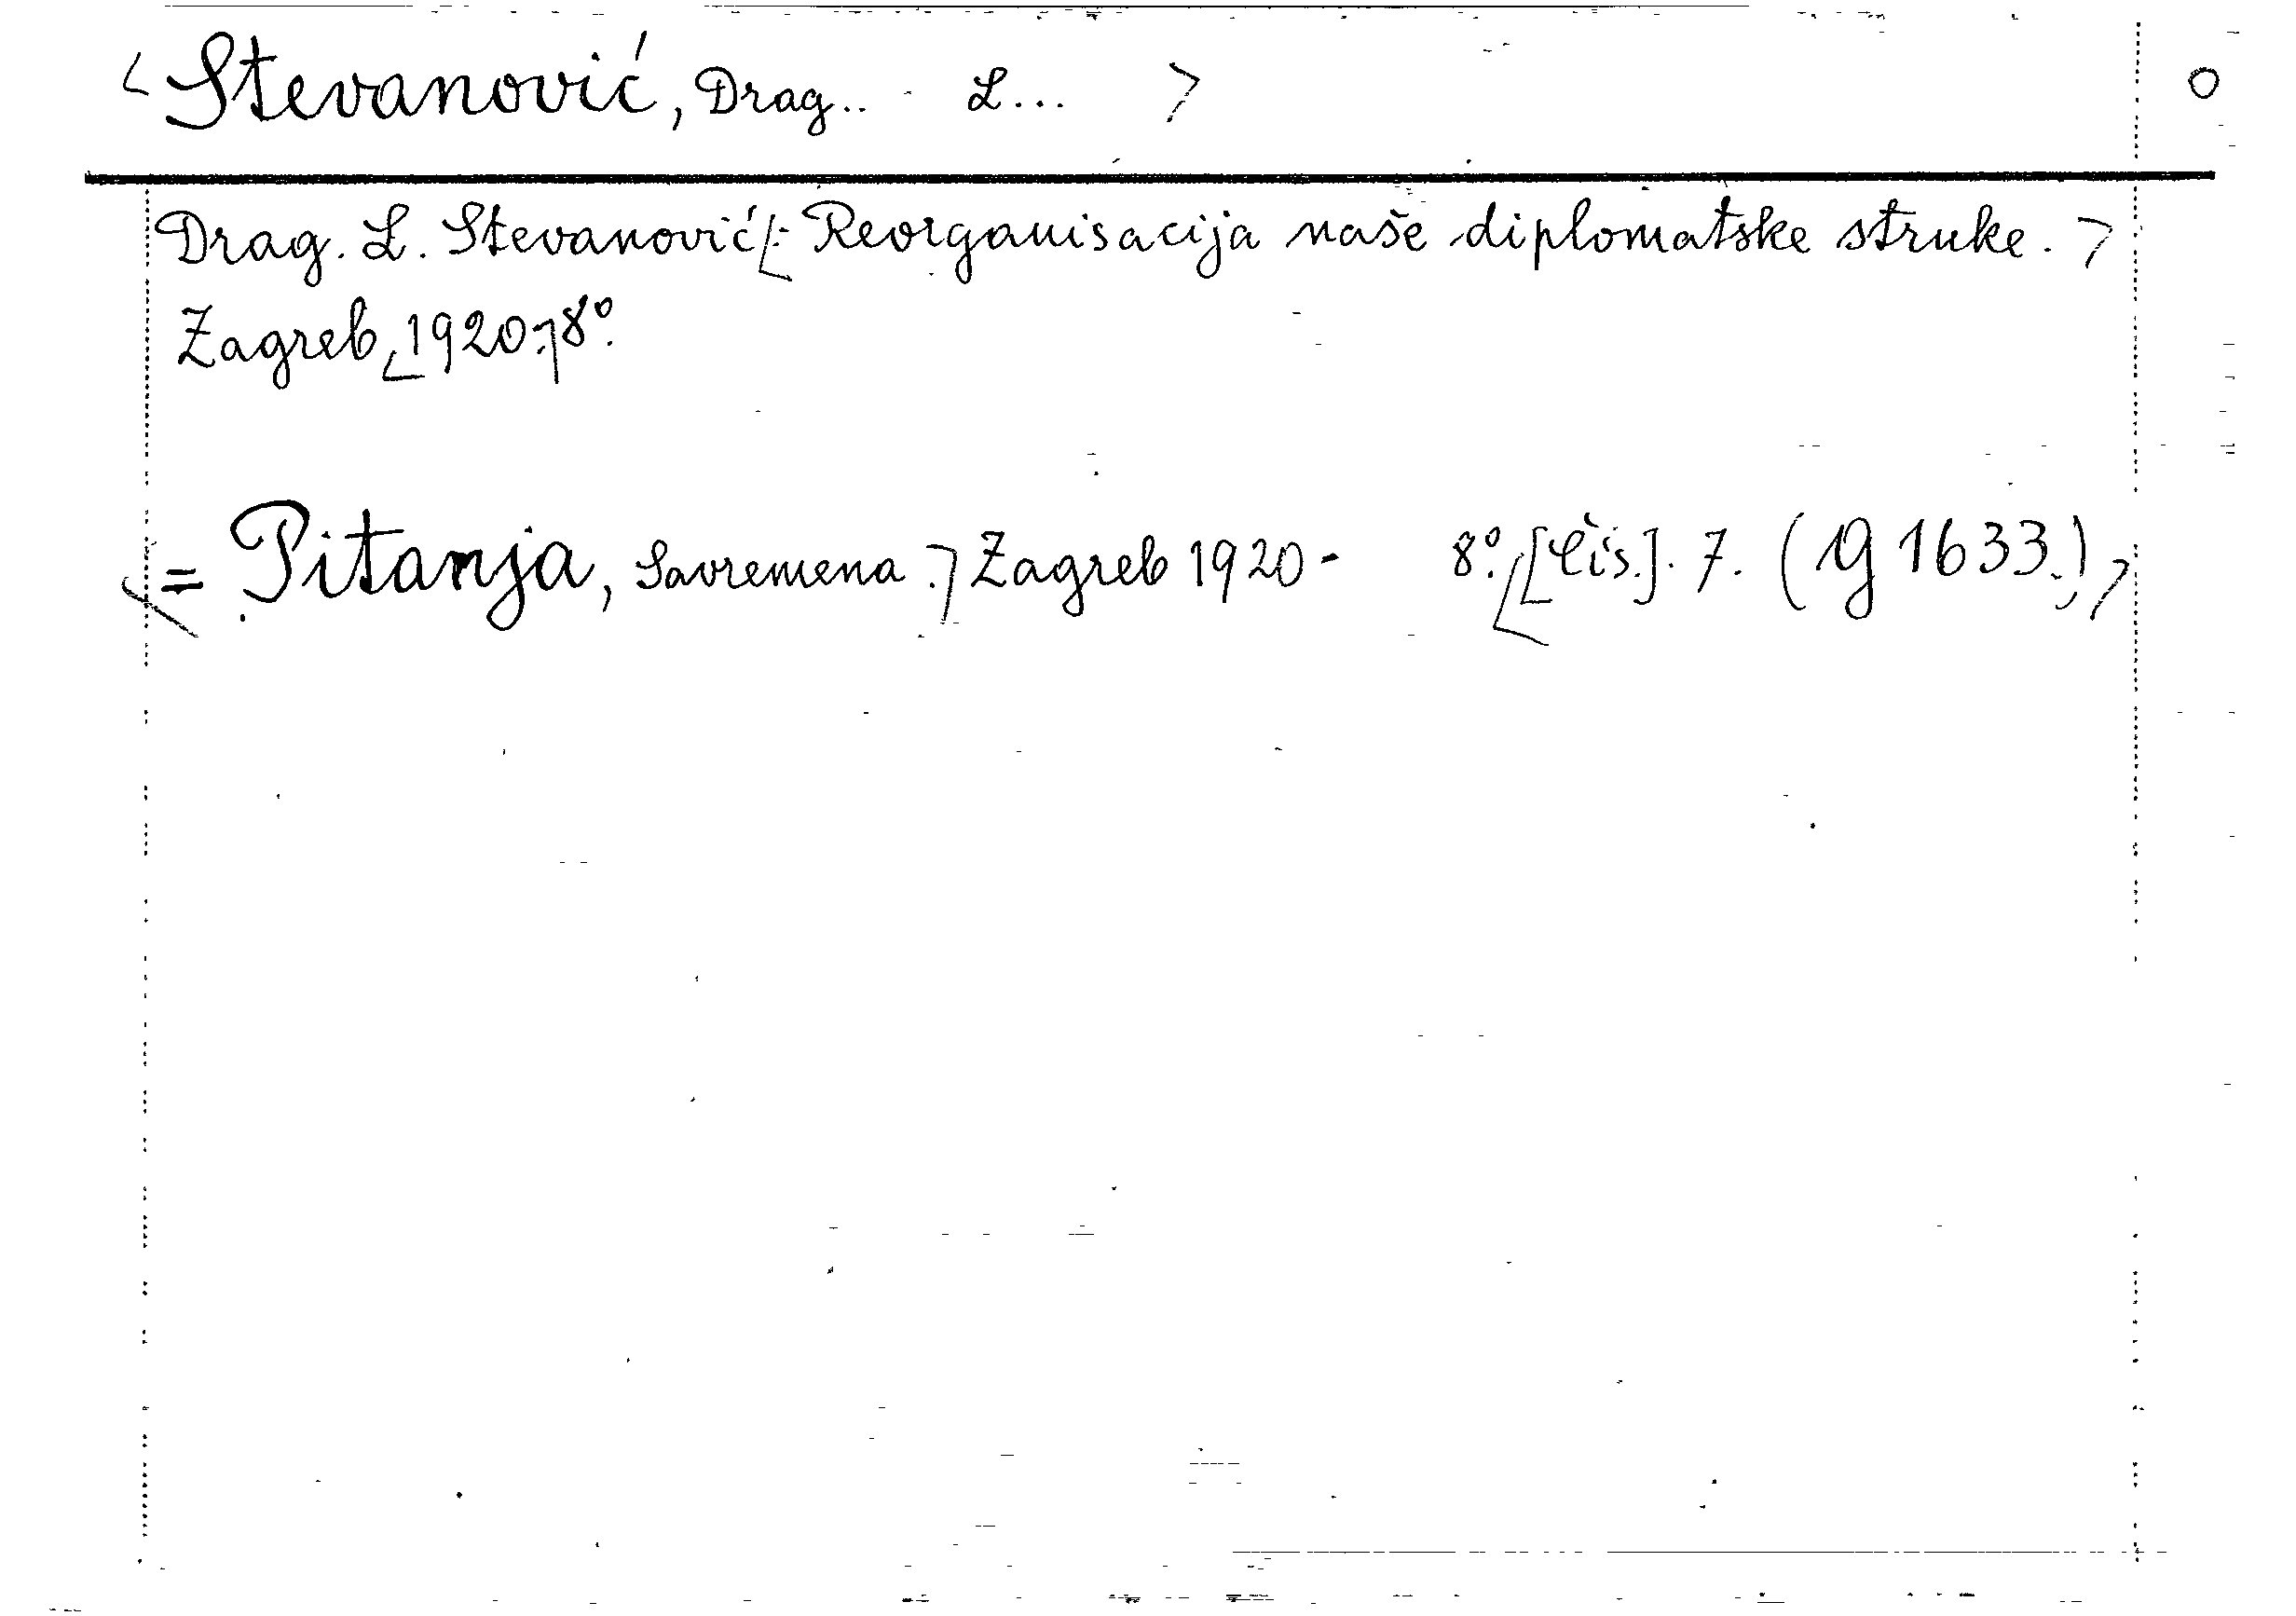 <Stevanović, Drag.. L... > O
Drag. L. Stevanović[: Reorganisacija naše diplomatske struke. >
Zagreb, 1920. 8°.
<= Pitanja, Savremena.] Zagreb 1920 - 8°. [[Čis.]. 7. (19 1633.)>